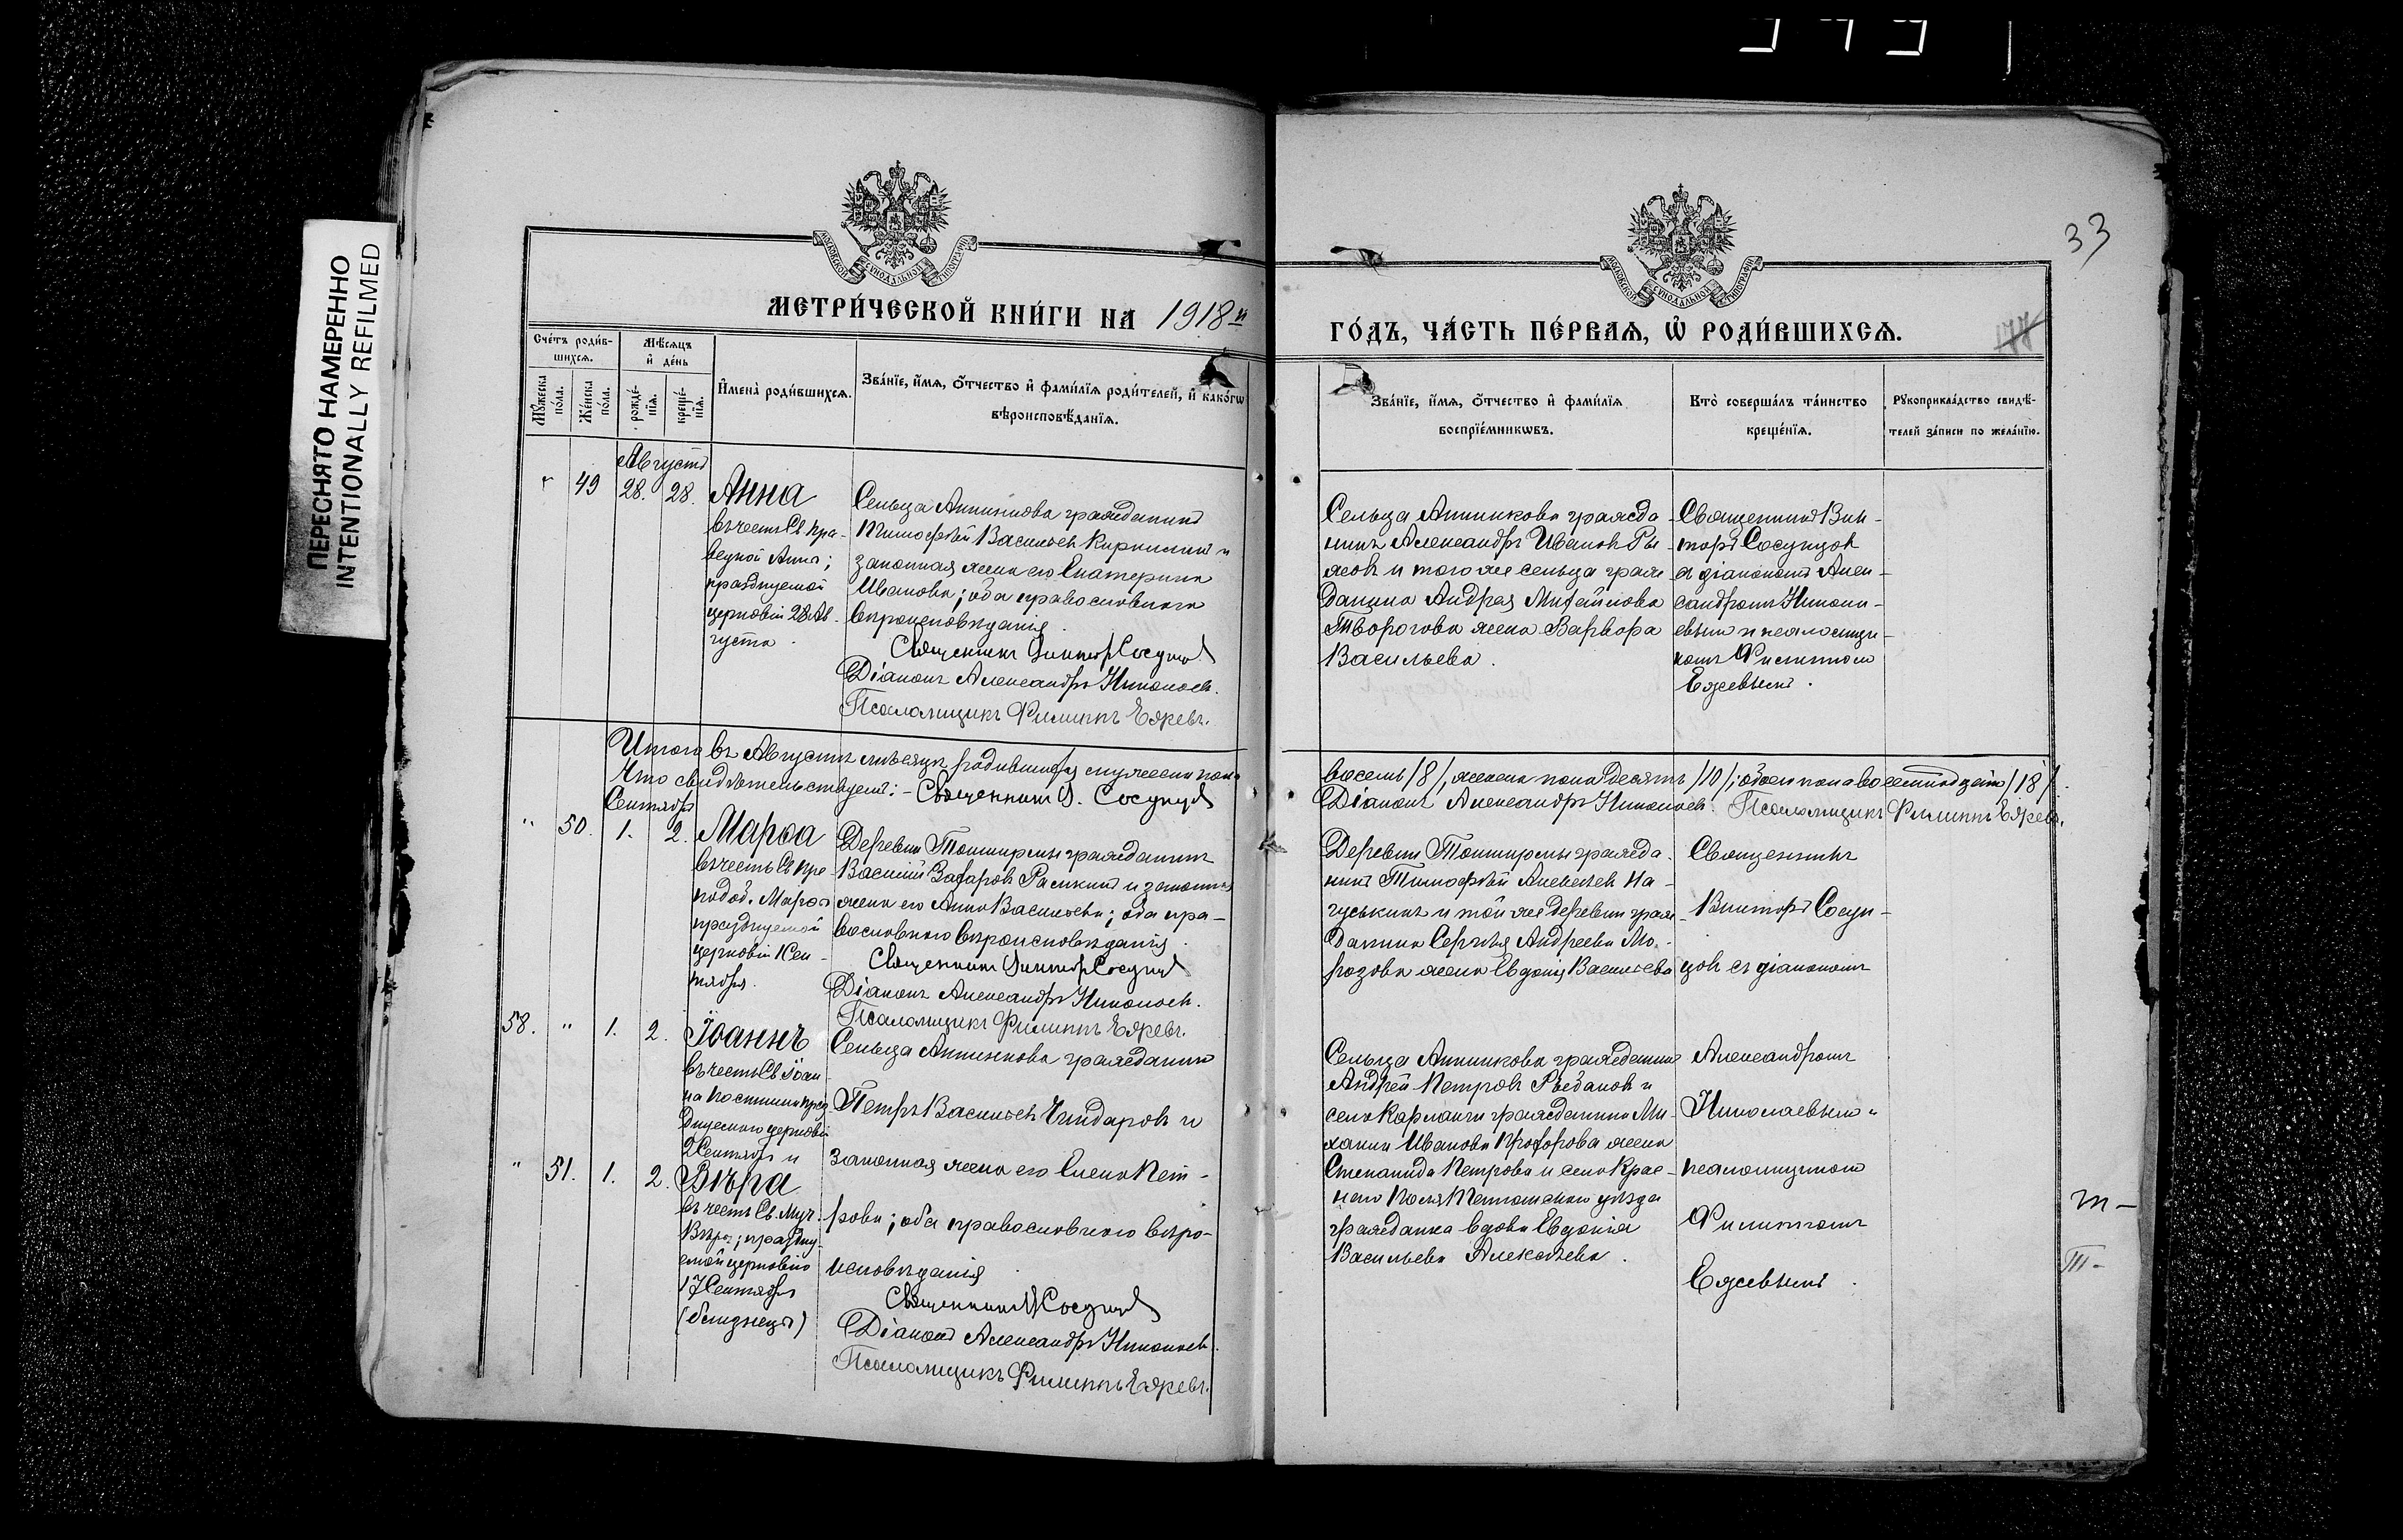 ПЕРЕСНЯТО НАМЕРЕННО
INTENTIONALLY REFILMED
33
МОСКОВСКОЙ СѴНОДАЛЬНОЙ ТИПОГРАФІИ
МОСКОВСКОЙ СѴНОДАЛЬНОЙ ТИПОГРАФІИ
МЕТРИ́ЧЕСКОЙ КНИ́ГИ НА 1918й
ГО́ДЪ, ЧА́СТЬ ПЕ́РВАѦ, Ѡ҆ РОДИ́ВШИХСѦ.
177
Сче́тъ роди́в-
шихсѧ.
Мѣ́сѧцъ
и҆ де́нь
Мꙋ́жеска по́ла.
Же́нска по́ла.
рожде́-
нїѧ.
креще́-
нїѧ.
И҆мена̀ роди́вшихсѧ.
Зва́нїе, и҆́мѧ, ѻ҆́тчество и҆ фами́лїѧ роди́телей, и҆ како́гѡ
вѣроисповѣ́данїѧ.
Зва́нїе, и҆́мѧ, ѻ҆́тчество и҆ фами́лїѧ
воспрїе́мникѡвъ.
Кто̀ соверша́лъ та́инство
креще́нїѧ.
Рꙋкоприкла́дство свидѣ́-
телей за́писи по жела́нїю.
Августъ
" 49 28. 28. Анна
въ честь Св. пра-
ведной Анны;
празднуемой
церковію 28 Ав-
густа.
Сельца Аникикова гражданинъ
Тимофѣй Васильевъ и
законная жена его Екатерина
Иванова; оба православнаго
вѣроисповѣданія.
Священникъ Викторъ Сосунцовъ
Діаконъ Александръ Николаевъ.
Псаломщикъ Филиппъ Ежевъ.
Сельца Аникикова гражда-
нинъ Александръ Ивановъ Ры-
жовъ и того же сельца граж-
данина Андрея Михайлова
Творогова жена Варвара
Васильева.
Священникъ Вик-
торъ Сосунцовъ
съ діакономъ Алек-
сандромъ Никола-
евымъ и псаломщи-
комъ Филиппомъ
Ежевымъ.
Итого въ Августѣ мѣсяцѣ родившихся мужеска пола
восемь /8/, женска пола десять /10/; обоего пола восемнадцать /18/.
Что свидѣтельствуемъ: - Священникъ В. Сосунцовъ
Діаконъ Александръ Николаевъ. Псаломщикъ Филиппъ Ежевъ.
Сентябрь
" 50. 1. 2. Марѳа
въ честь Св. пре-
подоб. Марѳы
празднуемой
церковію 1 Сен-
тября.
Деревни Тоншермы гражданинъ
Василій Захаровъ и законная
жена его Анна Васильева; оба пра-
вославнаго вѣроисповѣданія.
Священникъ Викторъ Сосунцовъ
Діаконъ Александръ Николаевъ.
Псаломщикъ Филиппъ Ежевъ.
Деревни Тоншермы гражда-
нинъ Тимофѣй Алексѣевъ На-
гуськинъ и той же деревни граж-
данина Сергѣя Андреева Мо-
розова жена Евдокія Васильева
Священникъ
Викторъ Сосун-
цовъ съ діакономъ
58. " 1. 2. Іоаннъ
въ честь Св. Іоан-
на постника празд-
днуемаго церковію
2 Сентября и
Сельца Аникикова гражданинъ
Петръ Васильевъ Чиндаровъ и
законная жена его Елена Пет-
рова; оба православнаго вѣро-
исповѣданія.
Священникъ В. Сосунцовъ
Діаконъ Александръ Николаевъ.
Псаломщикъ Филиппъ Ежевъ.
" 51. 1. 2. Вѣра
въ честь Св. Муч.
Вѣры; праздну-
емой церковію
17 Сентября
(близнецы)
Сельца Аникикова гражданинъ
Андрей Петровъ Рыбаковъ и
села Кармалы гражданина Ми-
хаила Иванова Прохорова жена
Степанида Петрова и села Крас-
наго Поля Тетюшскаго уѣзда
гражданка вдова Евдокія
Васильева Алексѣева.
Александромъ
Николаевымъ и
псаломщикомъ
Филиппомъ
Ежевымъ.
т-